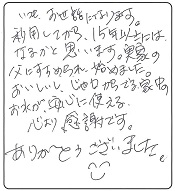 いつも、お世話になります。
利用してから、15年以上には
なるかと思います。実家の
父にすすめられ、始めました。
おいしいし、じゃ口からでる家中の
お水が安心に使える。
心より感謝です。
ありがとうございました。